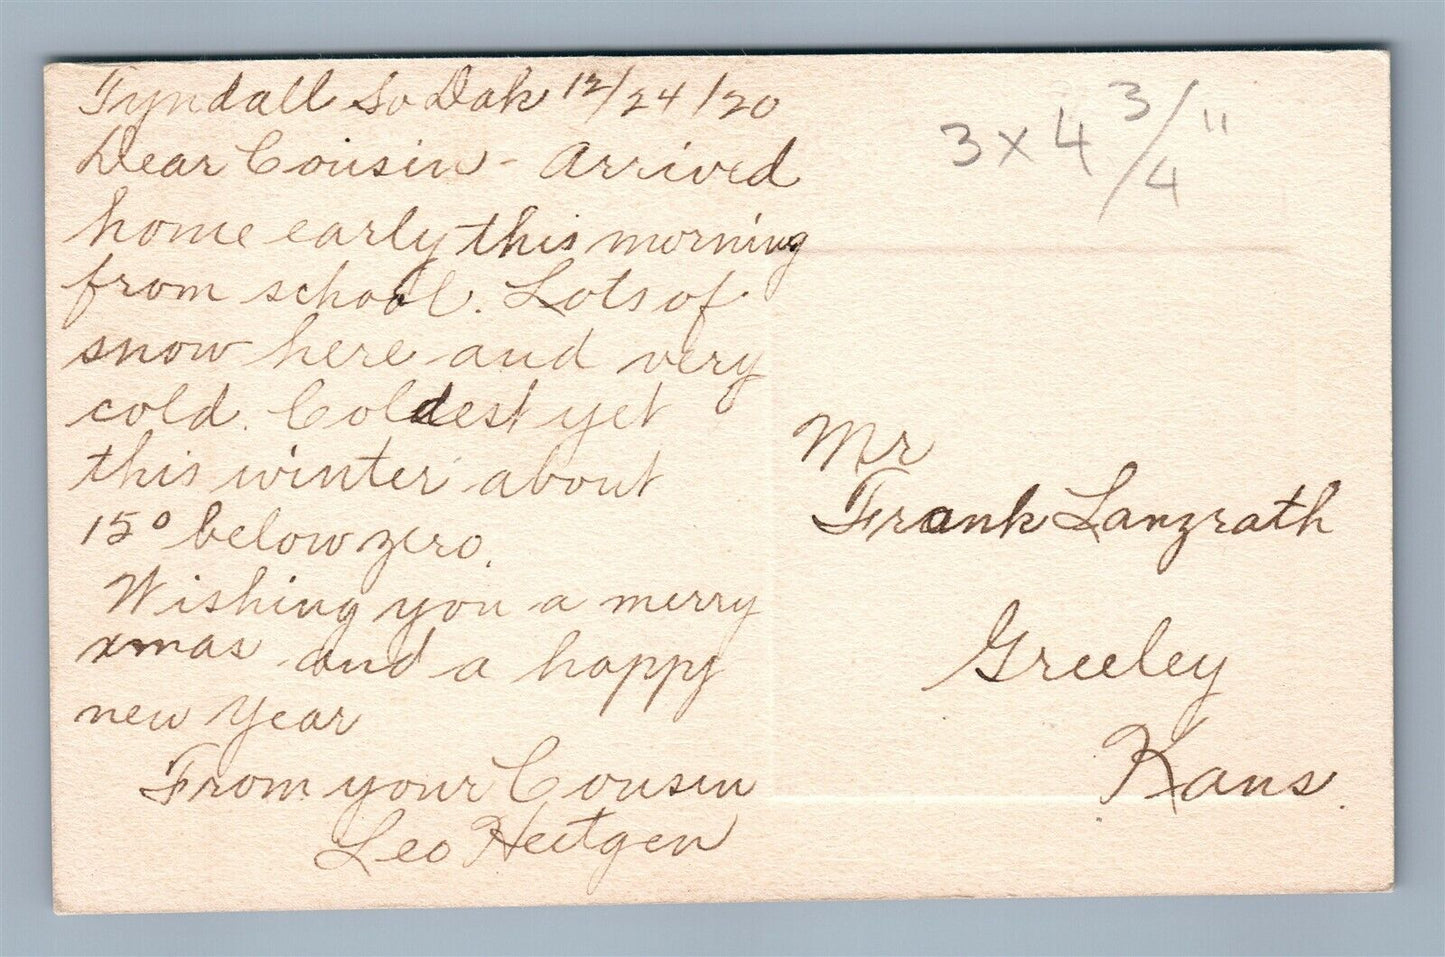 Tyndall So Dak 12/24/20
Dear Cousin - Arrived
home early this morning
from school. Lots of
snow here and very
cold. Coldest yet
this winter about
15° below zero.
Wishing you a merry
xmas and a happy
new year
From your Cousin
Leo Heetgen
3 x 4 3/4"
Mr
Frank Lanzrath
Greeley
Kans.